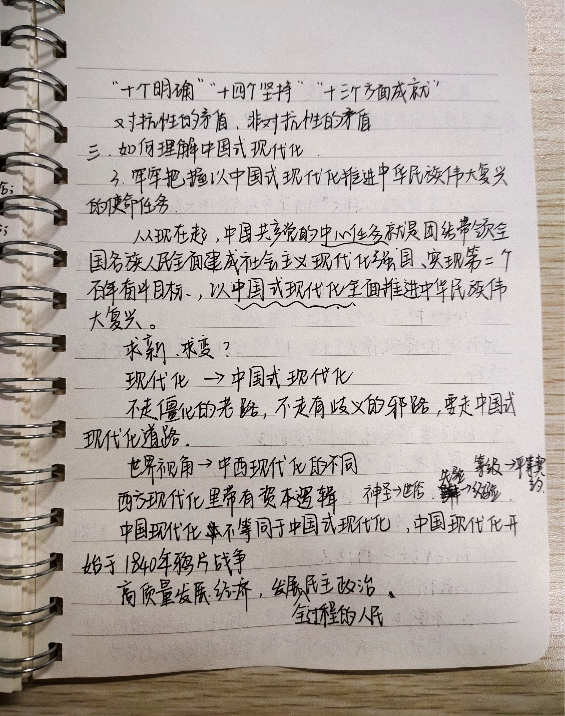 "十个明确""十四个坚持""十三个方面成就"
对抗性的矛盾、非对抗性的矛盾
三、如何理解中国式现代化
3.牢牢把握以中国式现代化推进中华民族伟大复兴
的使命任务.
从现在起,中国共产党的中心任务就是团结带领全
国各族人民全面建成社会主义现代化强国、实现第二个
百年奋斗目标、,以中国式现代化全面推进中华民族伟
大复兴。
求新、求变?
现代化 → 中国式现代化
不走僵化的老路,不走有歧义的邪路,要走中国式
现代化道路.
世界视角→中西现代化的不同
等级→平等契
约
西方现代化里带有资本逻辑 神圣→世俗、先验→经验
中国现代化不等同于中国式现代化,中国现代化开
始于1840年鸦片战争
高质量发展经济,发展民主政治、
全过程的人民